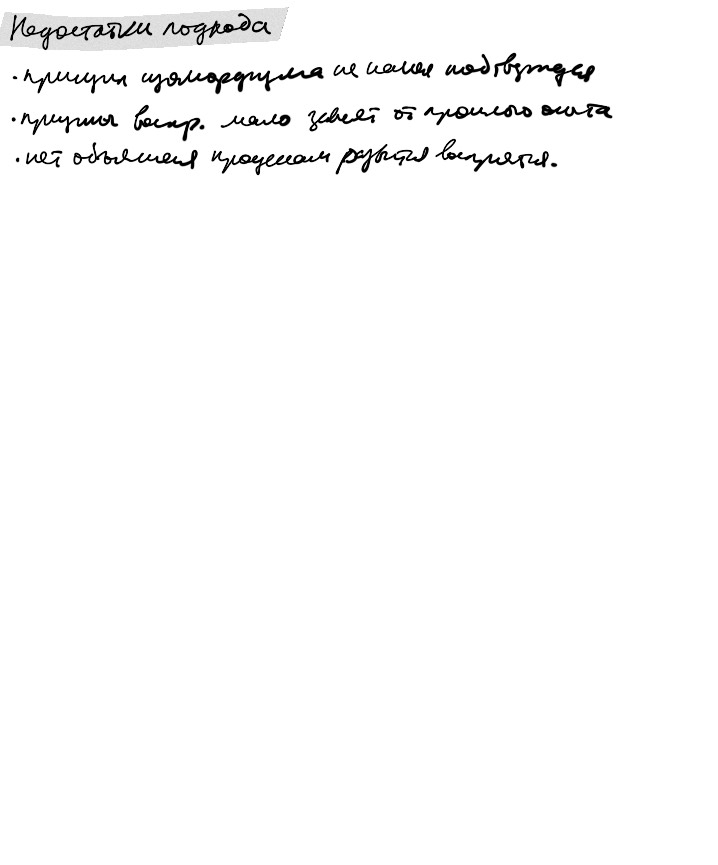 Недостатки подхода
· принцип изоморфизма не нашел подтвержден
· принципы воспр. мало зависят от прошлого опыта
· нет объяснения процессам развития восприятия.